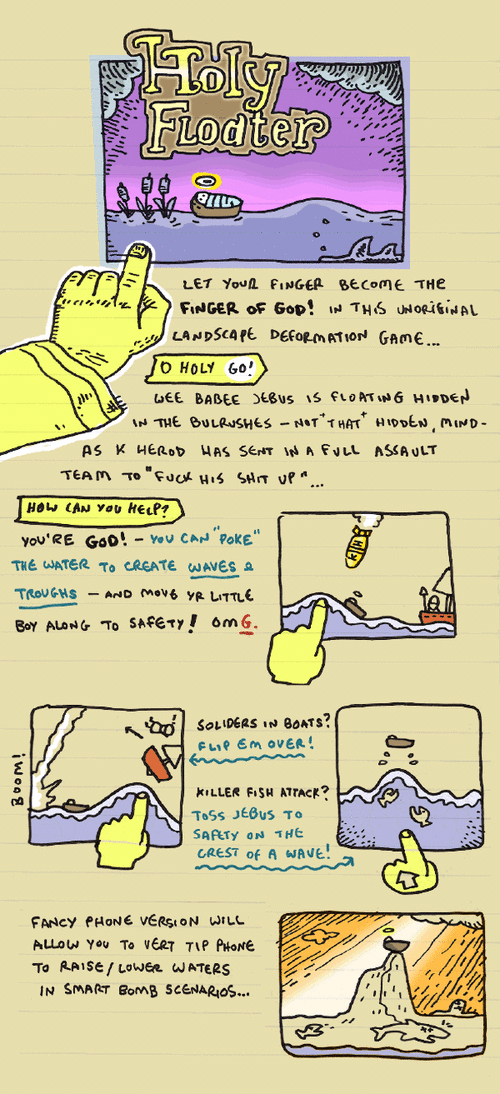 Holy
Floater
LET YOUR FINGER BECOME THE
FINGER OF GOD! IN THIS UNORIGINAL
LANDSCAPE DEFORMATION GAME...
O HOLY GO!
WEE BABEE JEBUS IS FLOATING HIDDEN
IN THE BULRUSHES - NOT *THAT* HIDDEN, MIND-
AS K HEROD HAS SENT IN A FULL ASSAULT
TEAM TO "FUCK HIS SHIT UP"...
HOW CAN YOU HELP?
YOU'RE GOD! - YOU CAN "POKE"
THE WATER TO CREATE WAVES &
TROUGHS - AND MOVE YR LITTLE
BOY ALONG TO SAFETY! OMG.
KH
BOOM!
SOLIDERS IN BOATS?
FLIP EM OVER!
KILLER FISH ATTACK?
TOSS JEBUS TO
SAFETY ON THE
CREST OF A WAVE!
FANCY PHONE VERSION WILL
ALLOW YOU TO VERT TIP PHONE
TO RAISE/LOWER WATERS
IN SMART BOMB SCENARIOS...